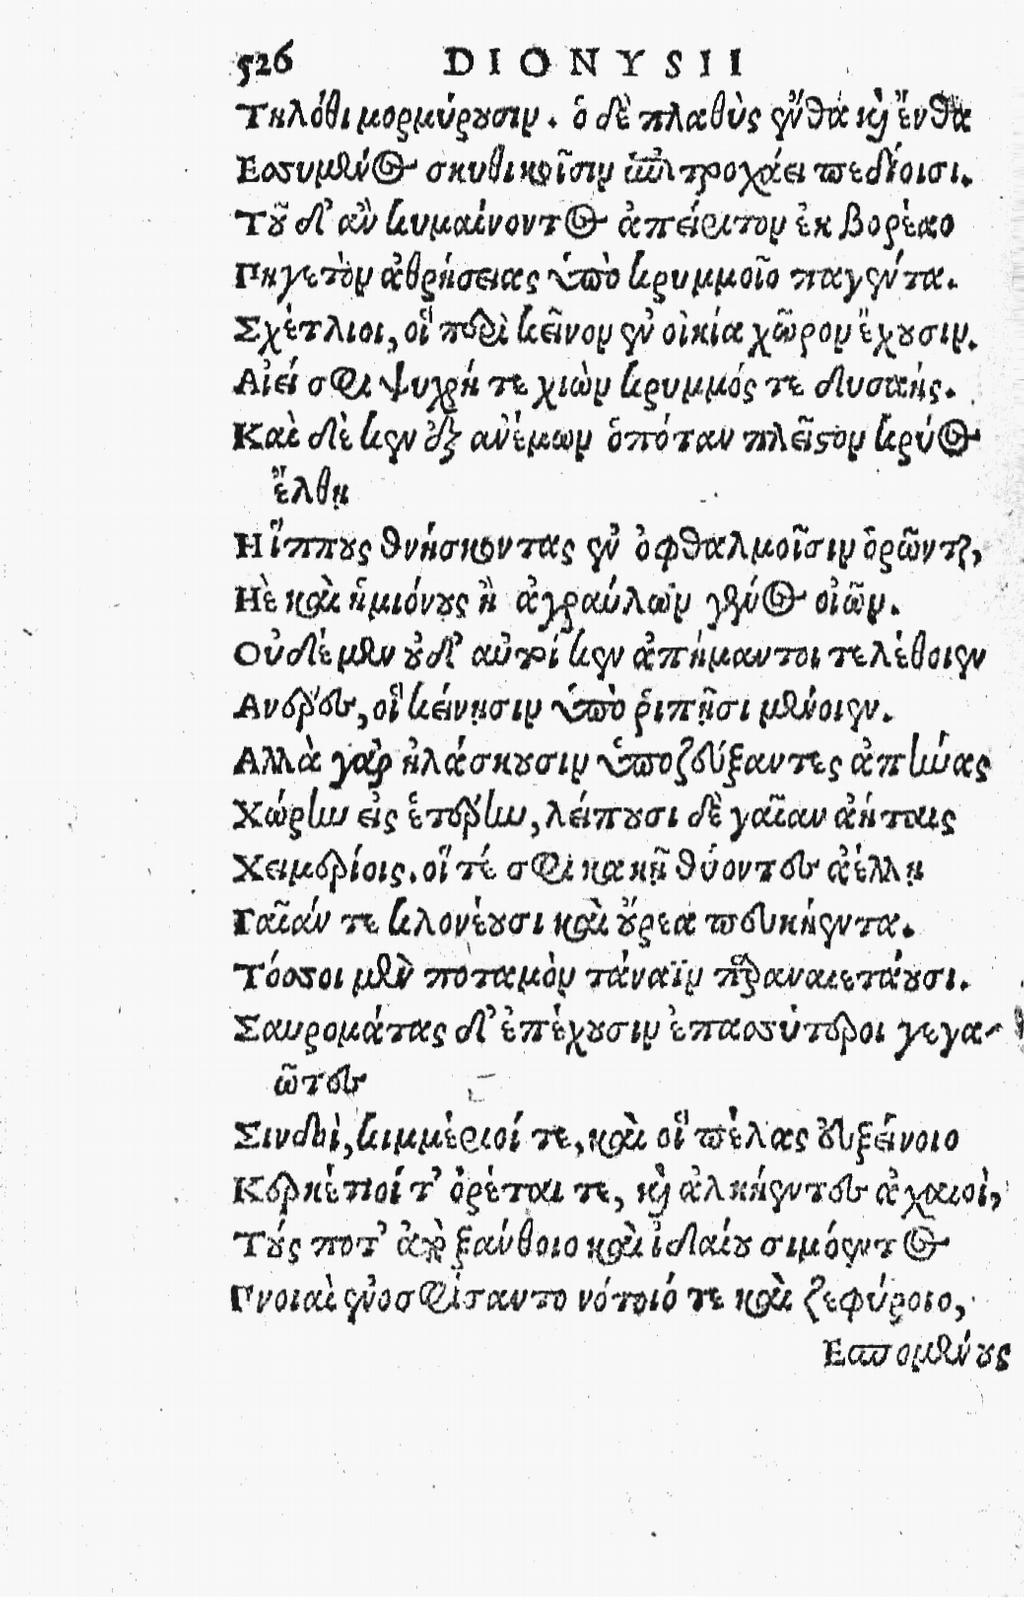 526 DIONYSII
Τηλόθι μορμύρουσιν. ὁ δὲ πλατὺς ἔνθα καὶ ἔνθα
Εσσυμένος σκυθικοῖσιν ἐπιτροχάει πεδίοισι.
Τοῦ δ' ἂν κυμαίνοντος ἀπείριτον ἐκ βορέαο
Πηγετὸν ἀθρήσειας ὑπὸ κρυμμοῖο παγέντα.
Σχέτλιοι, οἳ περὶ κεῖνον ἐν οἰκία χῶρον ἔχουσιν.
Αἰεί σφι ψυχρή τε χιὼν κρυμμός τε δυσαής.
Καὶ δὲ κεν ἐξ ανέμων ὁπόταν πλεῖστον κρύος
ἔλθῃ
Η ἵππους θνήσκοντας ἐν ὀφθαλμοῖσιν ὁρῶντο,
Ηὲ καὶ ἡμιόνους ἢ ἀγραύλων γένος οἰῶν.
Οὐδέ μὲν οὐδ' αὐτοί κεν ἀπήμαντοι τελέθοιεν
Ανδρες, οἳ κείνῃσιν ὑπὸ ῥιπῇσι μένοιεν.
Αλλὰ γὰρ ἠλάσκουσιν ὑποζεύξαντες ἀπήνας
Χώρην εἰς ἑτέρην, λείπουσι δὲ γαῖαν ἀήταις
Χειμερίοις. οἵ τέ σφι κακῇ θύοντες ἀέλλῃ
Γαῖάν τε κλονέουσι καὶ οὔρεα πευκήεντα.
Τόσσοι μὲν ποταμὸν τάναϊν περιναιετάουσι.
Σαυρομάτας δ' ἐπέχουσιν ἐπασσύτεροι γεγα-
ῶτες
Σινδοὶ, κιμμέριοί τε, καὶ οἳ πέλας εὐξείνοιο
Κερκέτιοί τ' ὀρέται τε, καὶ ἀλκήεντες ἀχαιοὶ,
Τούς ποτ' ἀπὸ ξάνθοιο καὶ ἰδαίου σιμόεντος
Πνοιαὶ ἐνοσφίσαντο νότοιό τε καὶ ζεφύροιο,
Εσπομένους